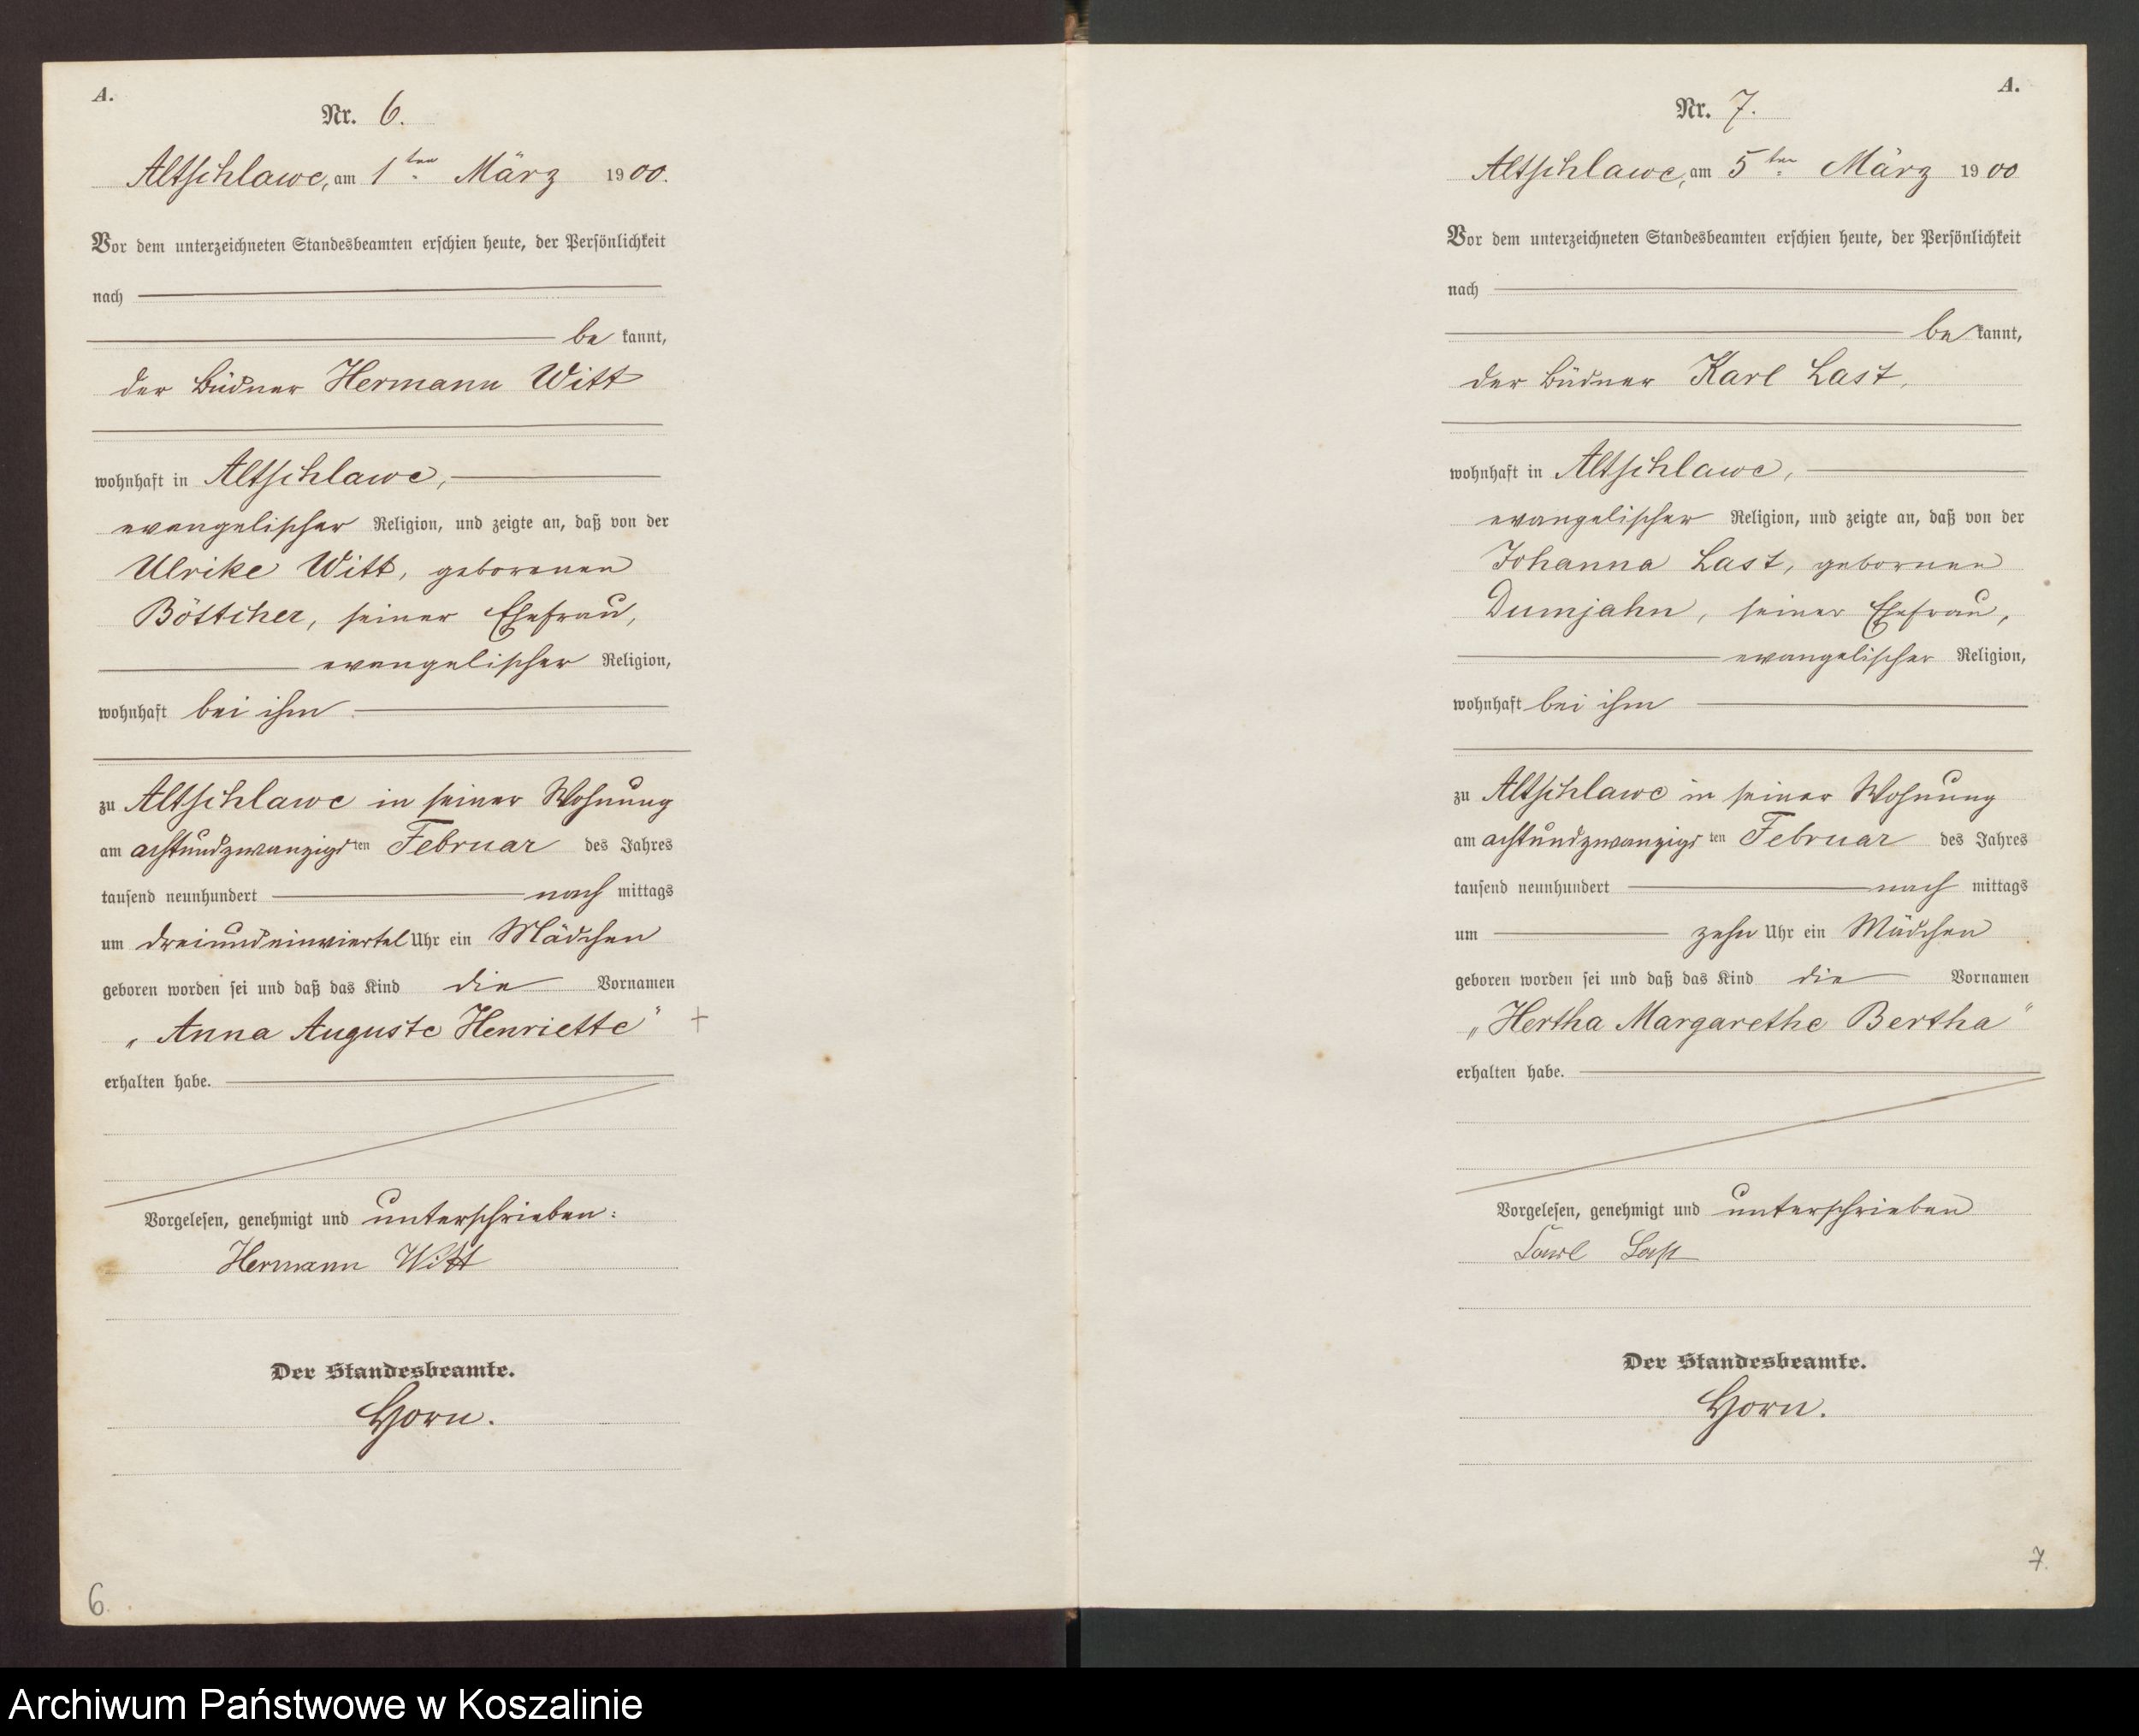 A.
Nr. 6.
Altschlawe, am 1ten März 1900.
Vor dem unterzeichneten Standesbeamten erschien heute, der Persönlichkeit
nach
be kannt,
der Büdner Hermann Witt
wohnhaft in Altschlawe,
evangelischer Religion, und zeigte an, daß von der
Ulrike Witt, geborenen
Böttcher, seiner Ehefrau,
evangelischer Religion,
wohnhaft bei ihm
zu Altschlawe in seiner Wohnung
am achtundzwanzigsten Februar des Jahres
tausend neunhundert nach mittags
um dreiundeinviertel Uhr ein Mädchen
geboren worden sei und daß das Kind die Vornamen
„Anna Auguste Henriette“ +
erhalten habe.
Vorgelesen, genehmigt und unterschrieben:
Hermann Witt
Der Standesbeamte.
Horn.
6.
A.
Nr. 7.
Altschlawe, am 5ten März 1900
Vor dem unterzeichneten Standesbeamten erschien heute, der Persönlichkeit
nach
be kannt,
der Büdner Karl Last,
wohnhaft in Altschlawe,
evangelischer Religion, und zeigte an, daß von der
Johanna Last, gebornen
Dumjahn, seiner Ehefrau,
evangelischer Religion,
wohnhaft bei ihm
zu Altschlawe in seiner Wohnung
am achtundzwanzigsten Februar des Jahres
tausend neunhundert nach mittags
um zehn Uhr ein Mädchen
geboren worden sei und daß das Kind die Vornamen
„Hertha Margarethe Bertha“
erhalten habe.
Vorgelesen, genehmigt und unterschrieben
Carl Last
Der Standesbeamte.
Horn.
7.
Archiwum Państwowe w Koszalinie